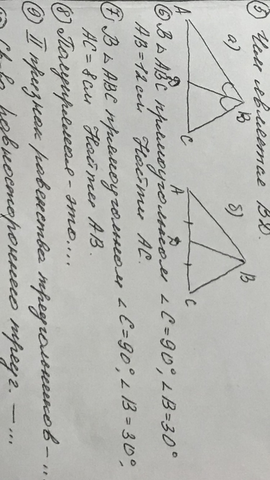 ⑤ Чем является BD.
а) б)
B B
A D C A D C
⑥ В △ABC прямоугольном ∠C=90°, ∠B=30°
AB=12см Найти AC.
⑦ В △ABC прямоугольном ∠C=90°, ∠B=30°,
AC=8см Найти AB.
⑧ Полупрямая - это....
⑨ II признак равенства треугольников - ...
равностороннего треуг. - ...